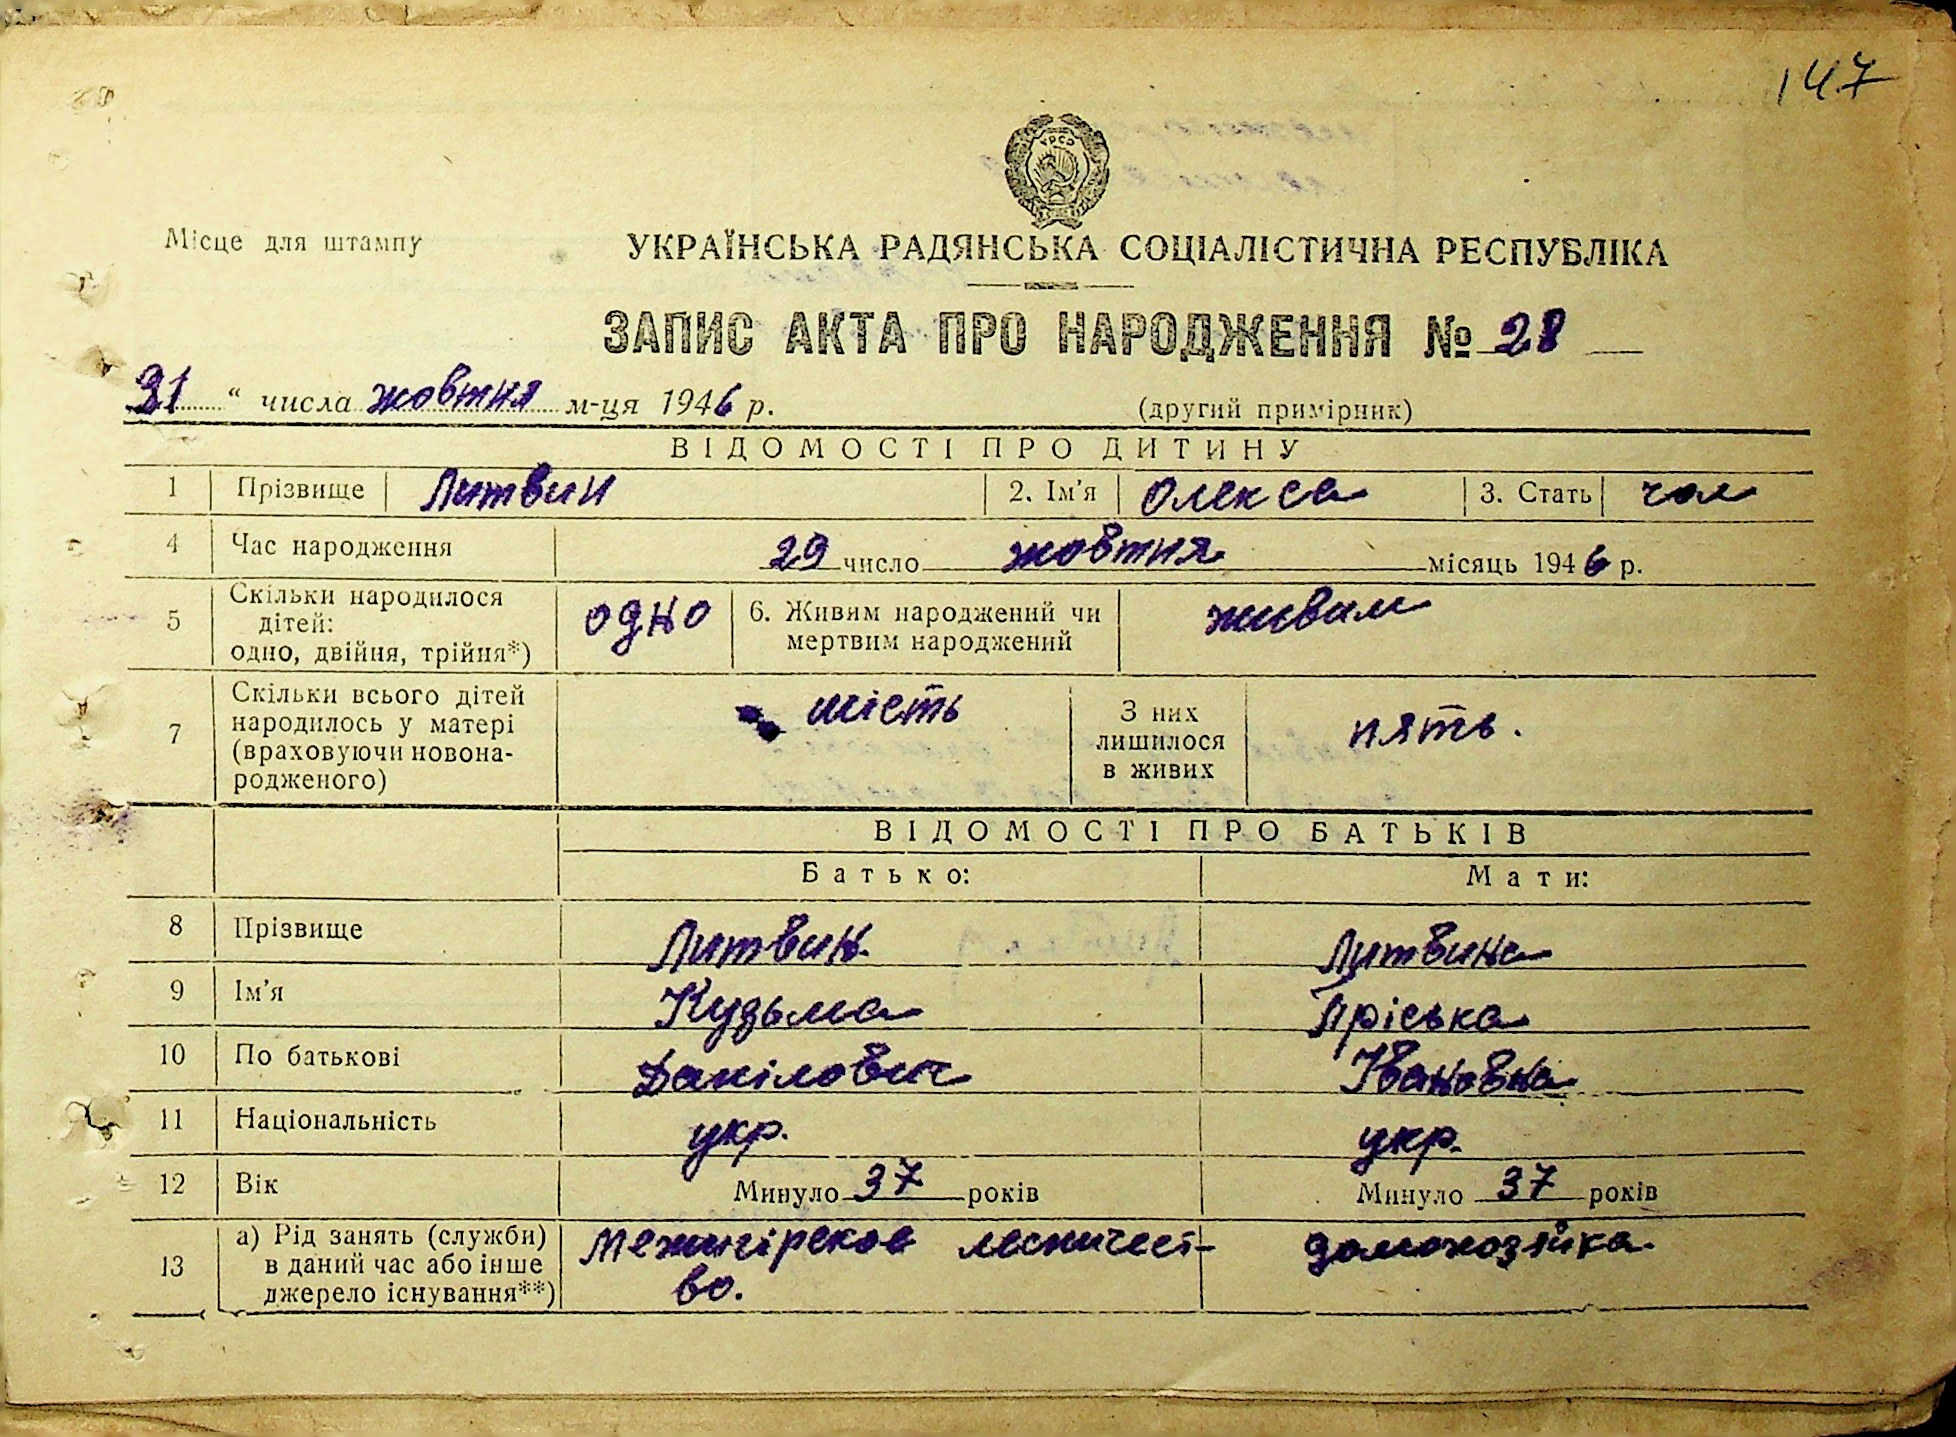 147
УРСР
Місце для штампу
УКРАЇНСЬКА РАДЯНСЬКА СОЦІАЛІСТИЧНА РЕСПУБЛІКА
ЗАПИС АКТА ПРО НАРОДЖЕННЯ № 28
31 “ числа жовтня м-ця 1946 р.
(другий примірник)
ВІДОМОСТІ ПРО ДИТИНУ
1 Прізвище Литвин 2. Ім'я Олекса 3. Стать чол
4 Час народження 29 число жовтня місяць 1946 р.
5 Скільки народилося дітей: одно, двійня, трійня*) одно 6. Живим народжений чи мертвим народжений живим
7 Скільки всього дітей народилось у матері (враховуючи новона-родженого) шість З них лишилося в живих пять.
ВІДОМОСТІ ПРО БАТЬКІВ
Батько: Мати:
8 Прізвище Литвин Литвина
9 Ім'я Кудьма Пріська
10 По батькові Данілович Івановна
11 Національність укр. укр.
12 Вік Минуло 37 років Минуло 37 років
13 а) Рід занять (служби) в даний час або інше джерело існування**) Межигірское лесничест-во. домохозяйка.